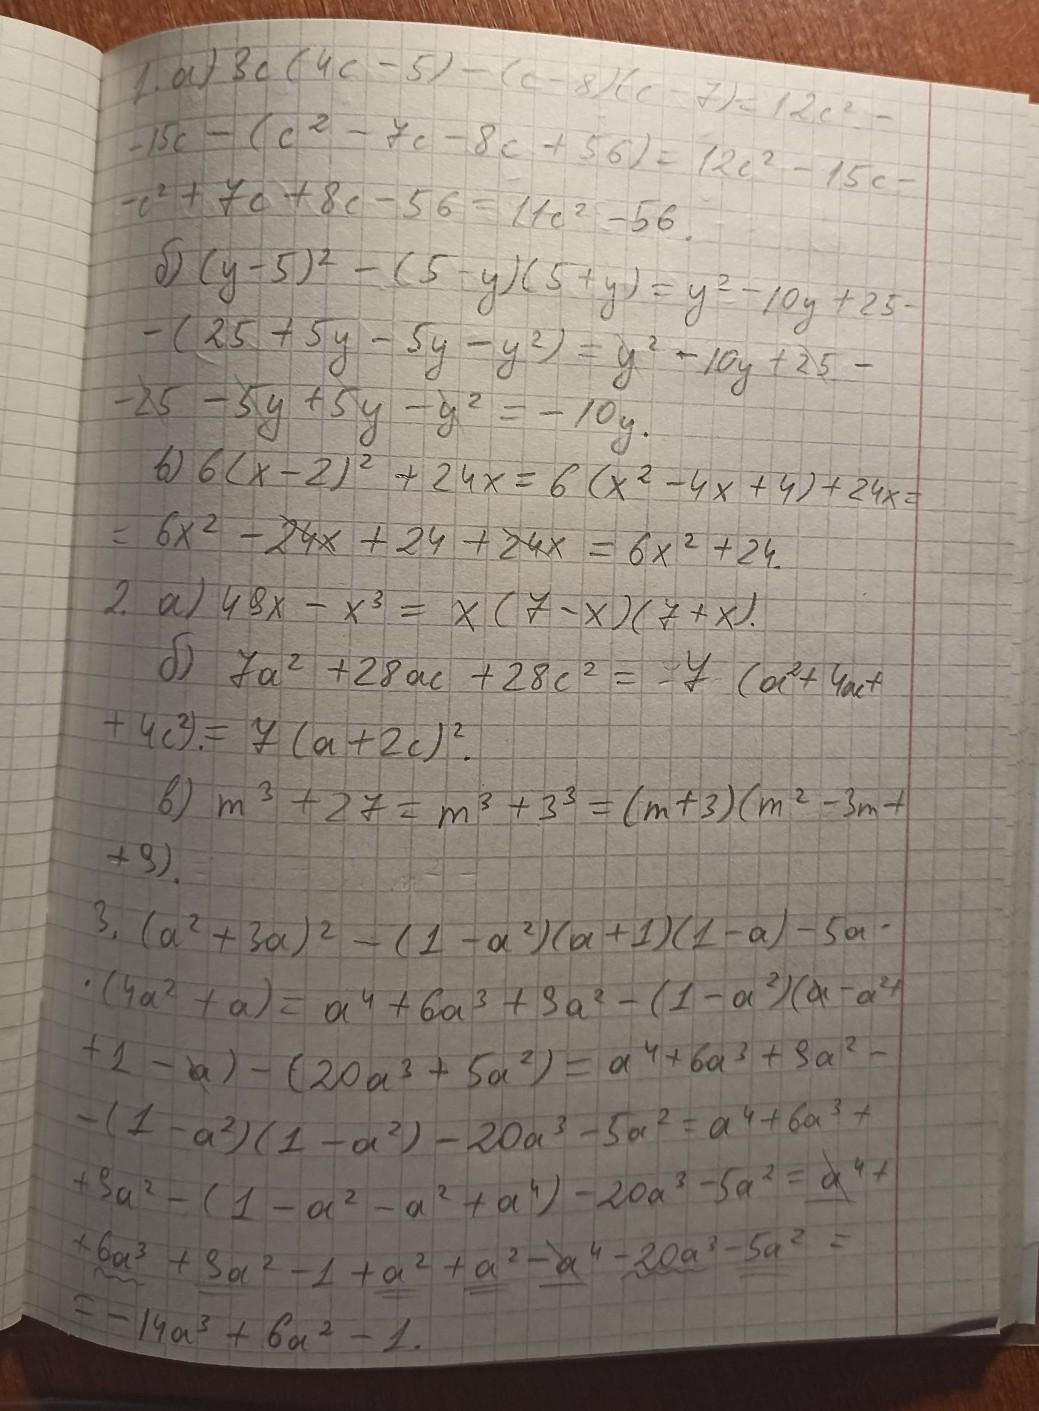 1. а) 3c(4c-5)-(c-8)(c-7)=12c²-
-15c-(c²-7c-8c+56)=12c²-15c-
-c²+7c+8c-56=11c²-56.
б) (y-5)²-(5-y)(5+y)=y²-10y+25-
-(25+5y-5y-y²)=y²-10y+25-
-25-5y+5y-y²=-10y.
в) 6(x-2)²+24x=6(x²-4x+4)+24x=
=6x²-24x+24+24x=6x²+24.
2. а) 49x-x³=x(7-x)(7+x).
б) 7a²+28ac+28c²=7(a²+4ac+
+4c²)=7(a+2c)².
в) m³+27=m³+3³=(m+3)(m²-3m+
+9).
3. (a²+3a)²-(1-a²)(a+1)(1-a)-5a·
·(4a²+a)=a⁴+6a³+9a²-(1-a²)(a-a²+
+1-a)-(20a³+5a²)=a⁴+6a³+9a²-
-(1-a²)(1-a²)-20a³-5a²=a⁴+6a³+
+9a²-(1-a²-a²+a⁴)-20a³-5a²=a⁴+
+6a³+9a²-1+a²+a²-a⁴-20a³-5a²=
=-14a³+6a²-1.